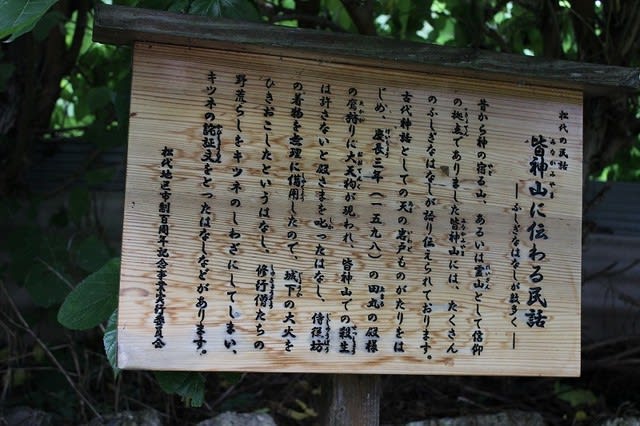 松代の民話
皆神山に伝わる民話
―ふしぎなはなしが数多く―
昔から神の宿る山、あるいは霊山として信仰
の拠点でありました皆神山には、たくさん
のふしぎなはなしが語り伝えられております。
古代神話としての天の岩戸ものがたりをは
じめ、慶長三年(一五九八)の田丸の殿様
の鷹狩りに大天狗が現われ、皆神山での殺生
は許さないと殿さまを叱ったはなし、侍従坊
の着物を無理に借用したので、城下の大火を
ひきおこしたというはなし、修行僧たちの
野荒らしをキツネのしわざにしてしまい、
キツネの詫証文をとったはなしなどがあります。
松代地区市制百周年記念事業実行委員会